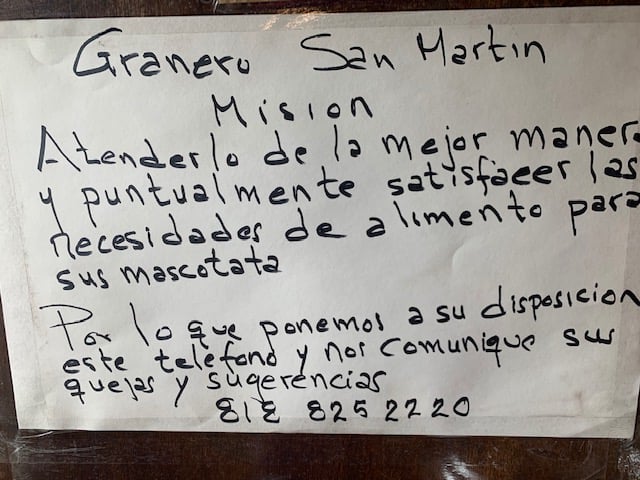 Granero San Martin
Mision
Atenderlo de la mejor maner
y puntualmente satisfacer las
necesidades de alimento para
sus mascotata
Por lo que ponemos a su disposicion
este telefono y nos comunique sus
quejas y sugerencias
818 825 2220